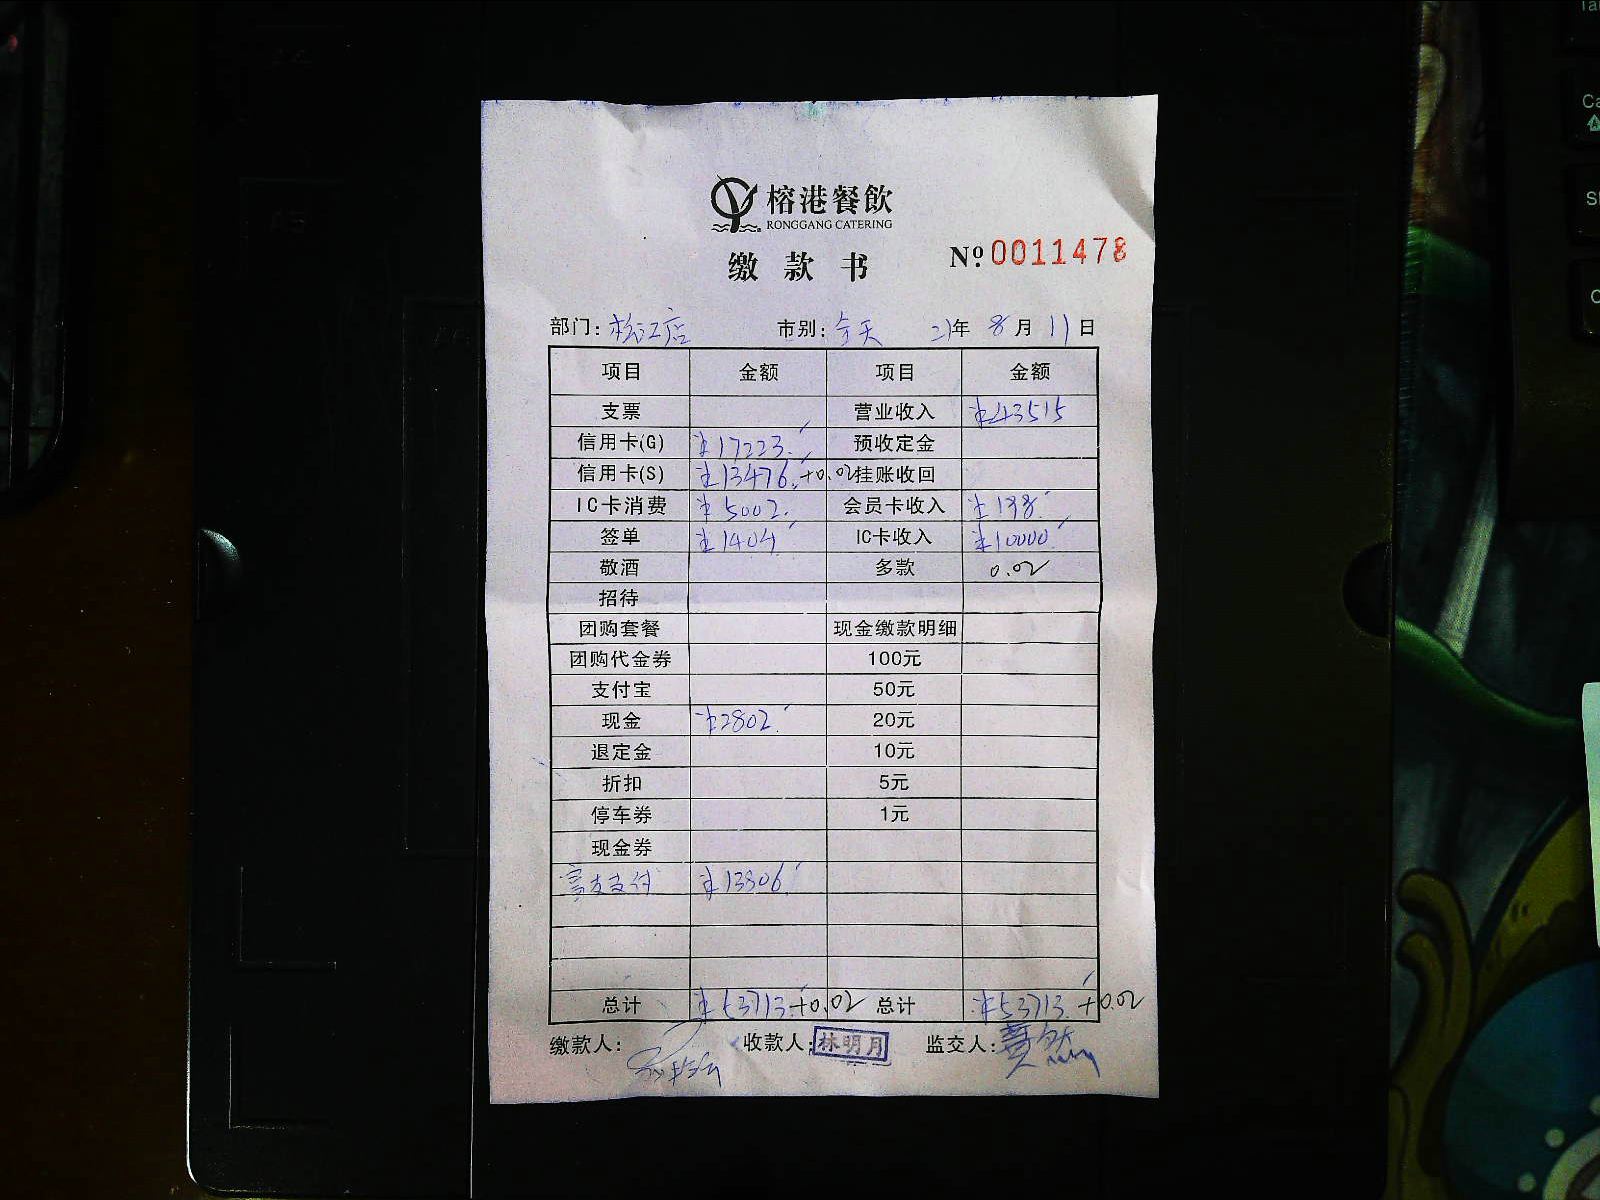 榕港餐飲
RONGGANG CATERING
缴款书 Nº 0011478
部门: 松江店 市别: 全天 21年 8月 11日
项目 金额 项目 金额
支票 营业收入 ¥43515
信用卡(G) ¥17223. 预收定金
信用卡(S) ¥13476.+0.02 挂账收回
IC卡消费 ¥5002. 会员卡收入 ¥198.
签单 ¥1404. IC卡收入 ¥10000.
敬酒 多款 0.02
招待
团购套餐 现金缴款明细
团购代金券 100元
支付宝 50元
现金 ¥2802. 20元
退定金 10元
折扣 5元
停车券 1元
现金券
富友支付 ¥13806.
总计 ¥53713.+0.02 总计 ¥53713.+0.02
缴款人: 收款人: 林明月 监交人: